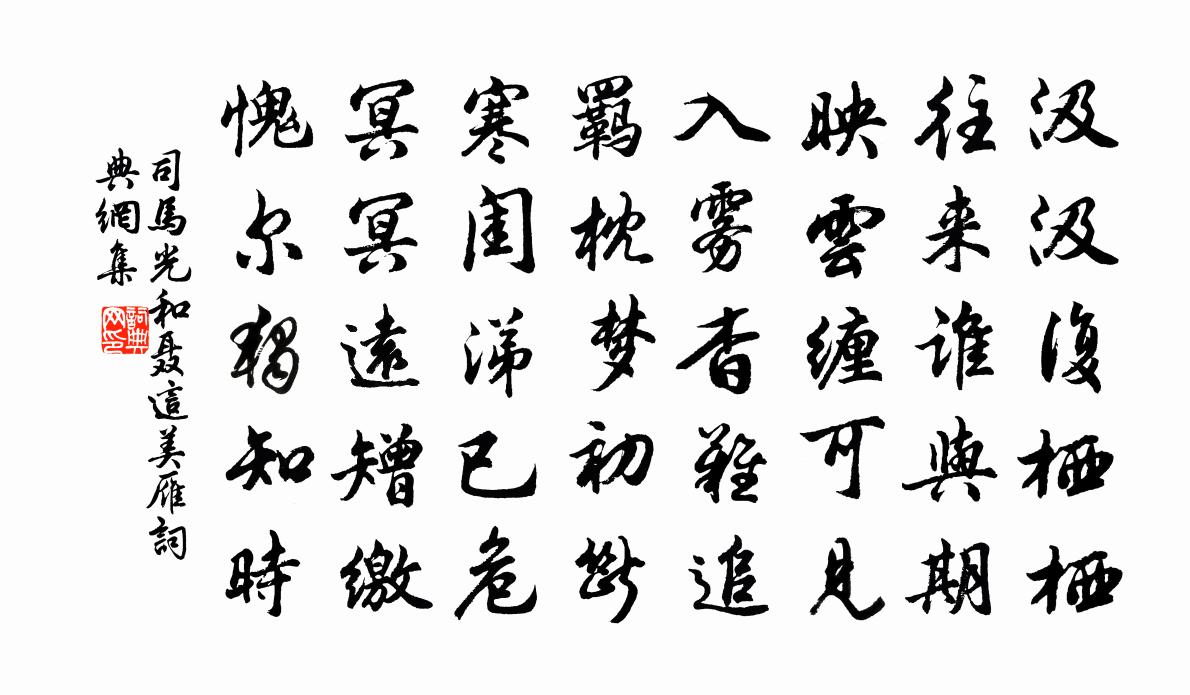 汲汲復栖栖
往来谁與期
映雲缠可見
入雾杳難追
羁枕梦初斷
寒闺涕已危
冥冥遠矰缴
愧尔獨知時
司馬光和聂這美雁詞
典網集
詞典网印